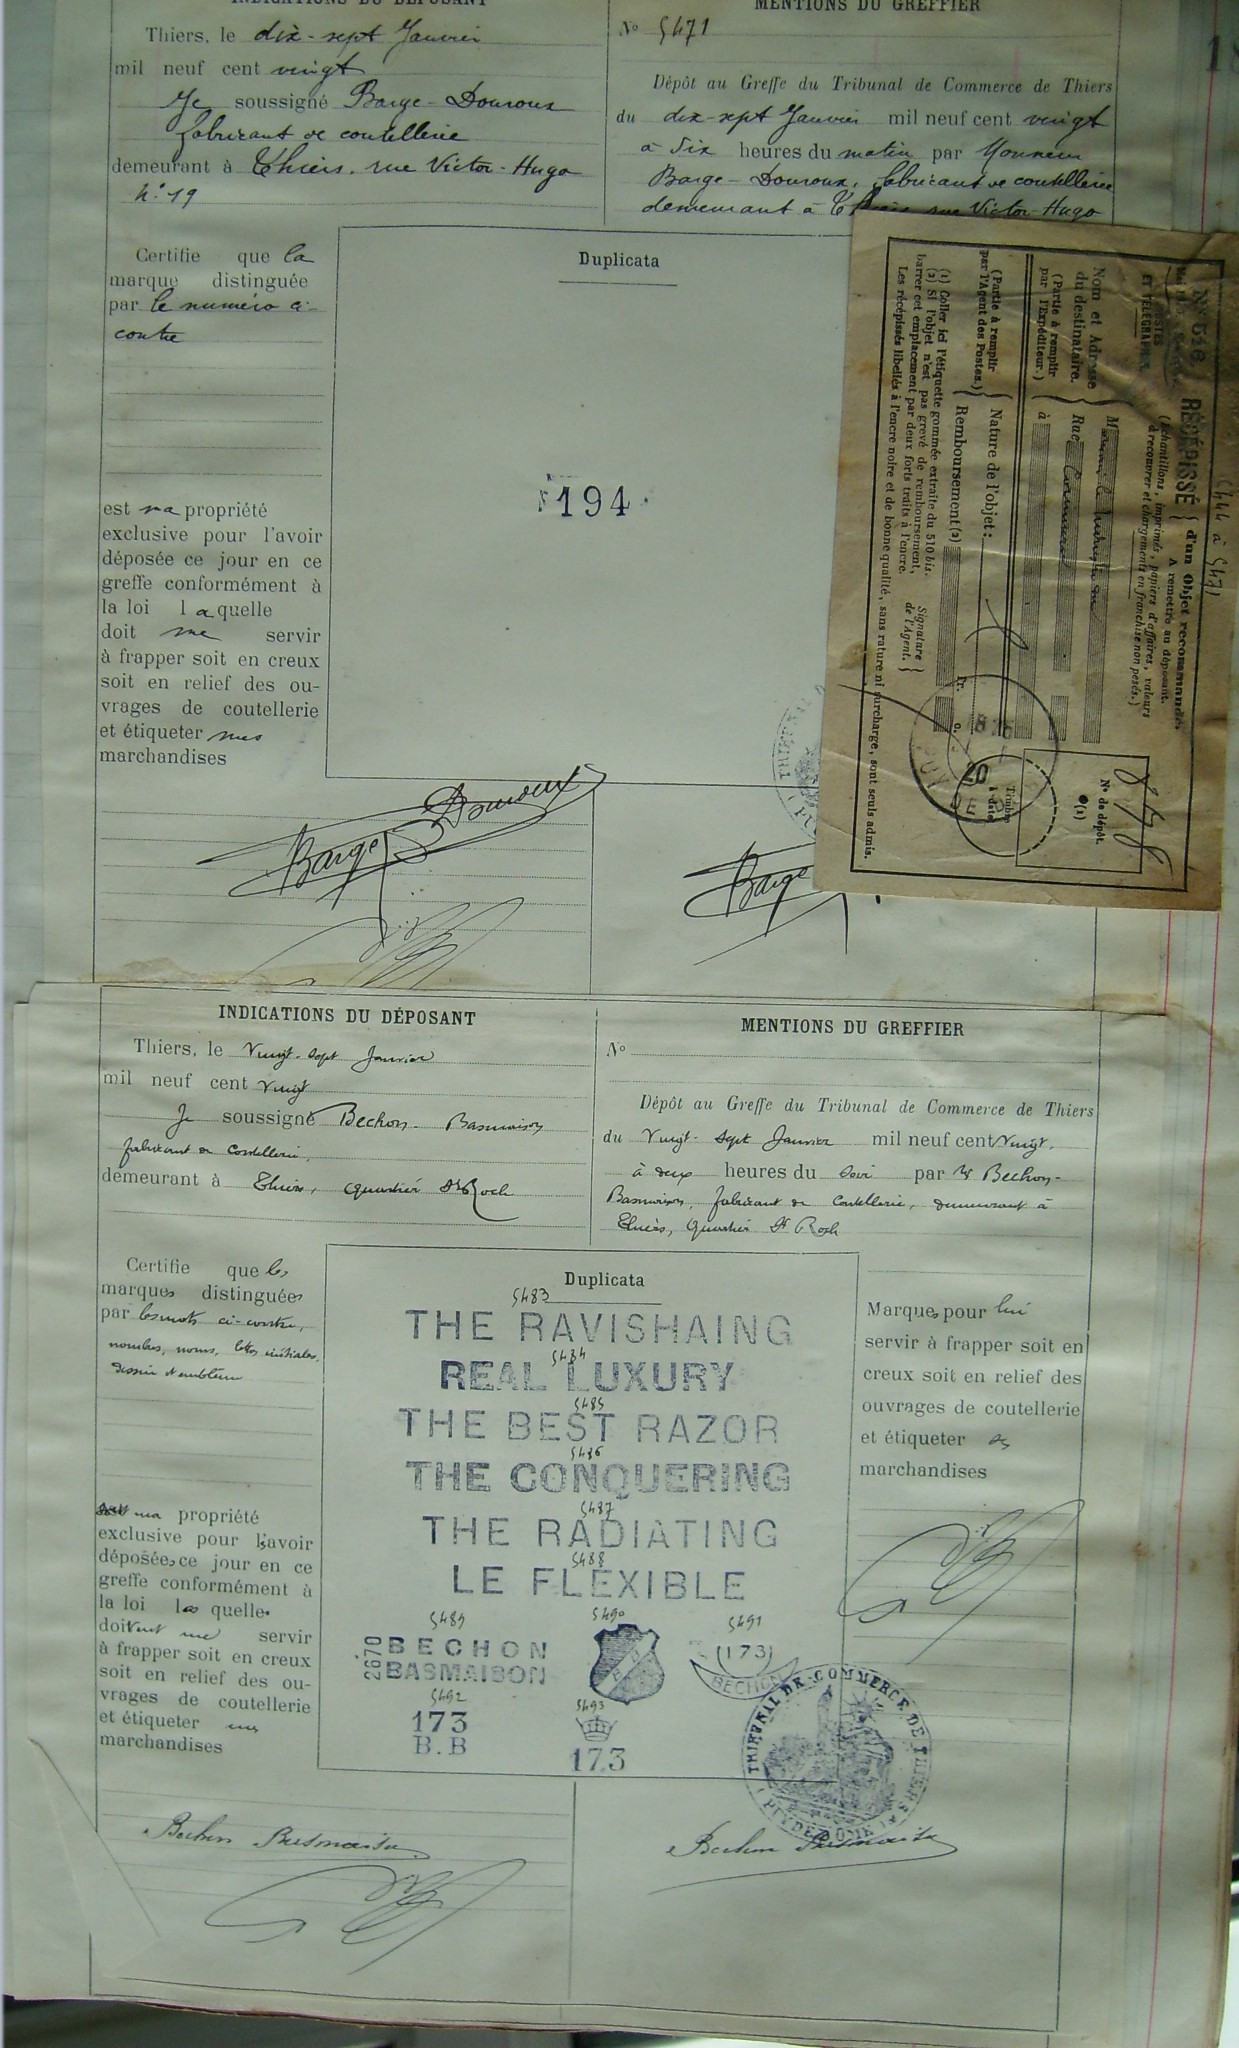 INDICATIONS DU DÉPOSANT
Thiers, le dix-sept Janvier
mil neuf cent vingt
Je soussigné Barge-Douroux
fabricant de coutellerie
demeurant à Thiers, rue Victor-Hugo
N° 19
MENTIONS DU GREFFIER
N° 5471
Dépôt au Greffe du Tribunal de Commerce de Thiers
du dix-sept Janvier mil neuf cent vingt
à dix heures du matin par Monsieur
Barge-Douroux, fabricant de coutellerie
demeurant à Thiers rue Victor-Hugo
Certifie que la
marque distinguée
par le numéro ci-
contre
est ma propriété
exclusive pour l'avoir
déposée ce jour en ce
greffe conformément à
la loi laquelle
doit me servir
à frapper soit en creux
soit en relief des ou-
vrages de coutellerie
et étiqueter mes
marchandises
Duplicata
194
Barge Douroux
Barge
5444 à 5471
RÉCÉPISSÉ d'un Objet recommandé
A remettre au déposant.
(Échantillons, imprimés, papiers d'affaires, valeurs
à recouvrer et chargements en franchise non pesés.)
POSTES
ET TÉLÉGRAPHES
Nom et Adresse
du destinataire.
(Partie à remplir
par l'Expéditeur.)
M
Rue
à
(Partie à remplir
par l'Agent des Postes.)
Nature de l'objet :
Remboursement (2)
Fr. c.
Signature
de l'Agent.
Timbre
à date
N° de dépôt.
(1)
(1) Coller ici l'étiquette gommée extraite du 510 bis.
(2) Si l'objet n'est pas grevé de remboursement,
barrer cet emplacement par deux forts traits à l'encre.
Les récépissés libellés à l'encre noire et de bonne qualité, sans rature ni surcharge, sont seuls admis.
INDICATIONS DU DÉPOSANT
Thiers, le Vingt-sept Janvier
mil neuf cent vingt
Je soussigné Bechon-Basmaison
fabricant de coutellerie,
demeurant à Thiers, Quartier St Roch
MENTIONS DU GREFFIER
N°
Dépôt au Greffe du Tribunal de Commerce de Thiers
du Vingt-sept Janvier mil neuf cent Vingt.
à deux heures du soir par Mr Bechon-
Basmaison, fabricant de coutellerie, demeurant à
Thiers, Quartier St Roch
Certifie que les
marques distinguées
par les mots ci-contre,
nombres, noms, lettres initiales,
dessin et emblème
ma propriété
exclusive pour les avoir
déposées, ce jour en ce
greffe conformément à
la loi lesquelles
doivent me servir
à frapper soit en creux
soit en relief des ou-
vrages de coutellerie
et étiqueter mes
marchandises
Duplicata
5483
THE RAVISHAING
5484
REAL LUXURY
5485
THE BEST RAZOR
5486
THE CONQUERING
5487
THE RADIATING
5488
LE FLEXIBLE
5489 5490 5491
2670 BECHON
BASMAISON
(173)
BECHON
5492 5493
173
B.B
173
Marques pour lui
servir à frapper soit en
creux soit en relief des
ouvrages de coutellerie
et étiqueter ses
marchandises
TRIBUNAL DE COMMERCE DE THIERS
(PUY DE DOME)
Bechon Basmaison
Bechon Basmaison